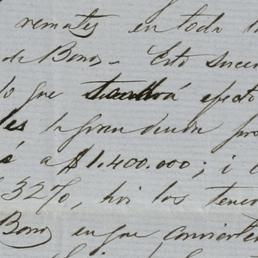 remates en todo
de Bonos – Esto suce
lo que tendrá efecto
les la gran deuda p
á a $1.400.000; i
32%, hoi los tene
Bonos en que convierte